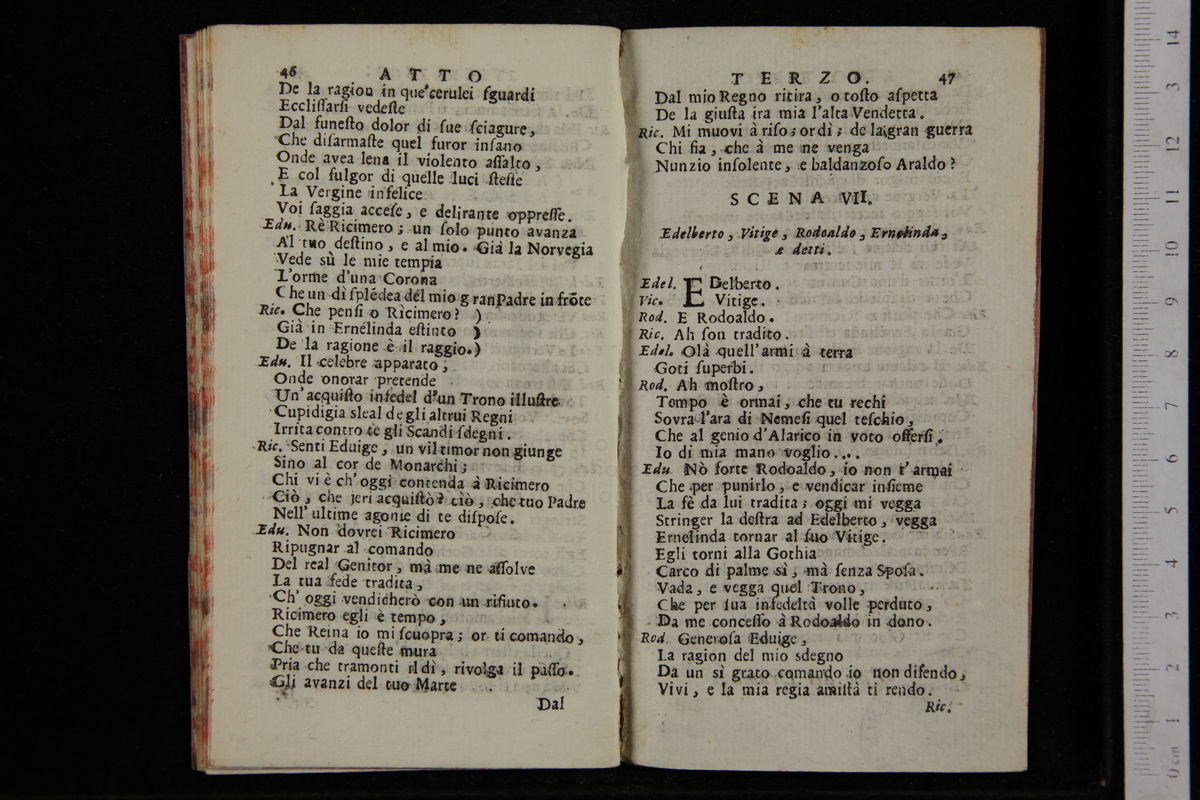 46 ATTO
De la ragion in que' cerulei sguardi
Ecclissarsi vedeste
Dal funesto dolor di sue sciagure,
Che disarmaste quel furor insano
Onde avea lena il violento assalto,
E col fulgor di quelle luci stesse
La Vergine infelice
Voi saggia accese, e delirante oppresse.
Edu. Rè Ricimero; un solo punto avanza
Al tuo destino, e al mio. Già la Norvegia
Vede sù le mie tempia
L'orme d'una Corona
Che un dì splẽdea del mio gran Padre in frõte
Ric. Che pensi o Ricimero? )
Già in Ernelinda estinto )
De la ragione è il raggio.)
Edu. Il celebre apparato,
Onde onorar pretende
Un' acquisto infedel d'un Trono illustre
Cupidigia sleal de gli altrui Regni
Irrita contro te gli Scandi sdegni.
Ric. Senti Eduige, un vil timor non giunge
Sino al cor de Monarchi;
Chi vi è ch'oggi contenda à Ricimero
Ciò, che jeri acquistò? ciò, che tuo Padre
Nell'ultime agonie di te dispose.
Edu. Non dovrei Ricimero
Ripugnar al comando
Del real Genitor, mà me ne assolve
La tua fede tradita,
Ch' oggi vendicherò con un rifiuto.
Ricimero egli è tempo,
Che Reina io mi scuopra; or ti comando,
Che tu da queste mura
Pria che tramonti il dì, rivolga il passo.
Gli avanzi del tuo Marte
Dal
TERZO. 47
Dal mio Regno ritira, o tosto aspetta
De la giusta ira mia l'alta Vendetta.
Ric. Mi muovi à riso; or dì; de la gran guerra
Chi fia, che à me ne venga
Nunzio insolente, e baldanzoso Araldo?
SCENA VII.
Edelberto, Vitige, Rodoaldo, Ernelinda,
e detti.
Edel. EDelberto.
Vic. Vitige.
Rod. E Rodoaldo.
Ric. Ah son tradito.
Edel. Olà quell'armi à terra
Goti superbi.
Rod. Ah mostro,
Tempo è ormai, che tu rechi
Sovra l'ara di Nemesi quel teschio,
Che al genio d'Alarico in voto offersi.
Io di mia mano voglio....
Edu. Nò forte Rodoaldo, io non t'armai
Che per punirlo, e vendicar insieme
La fè da lui tradita; oggi mi vegga
Stringer la destra ad Edelberto, vegga
Ernelinda tornar al suo Vitige.
Egli torni alla Gothia
Carco di palme sì, mà senza Sposa.
Vada, e vegga quel Trono,
Che per sua infedeltà volle perduto,
Da me concesso à Rodoaldo in dono.
Rod. Generosa Eduige,
La ragion del mio sdegno
Da un sì grato comando io non difendo,
Vivi, e la mia regia amistà ti rendo.
Ric.
0 cm 1 2 3 4 5 6 7 8 9 10 11 12 13 14